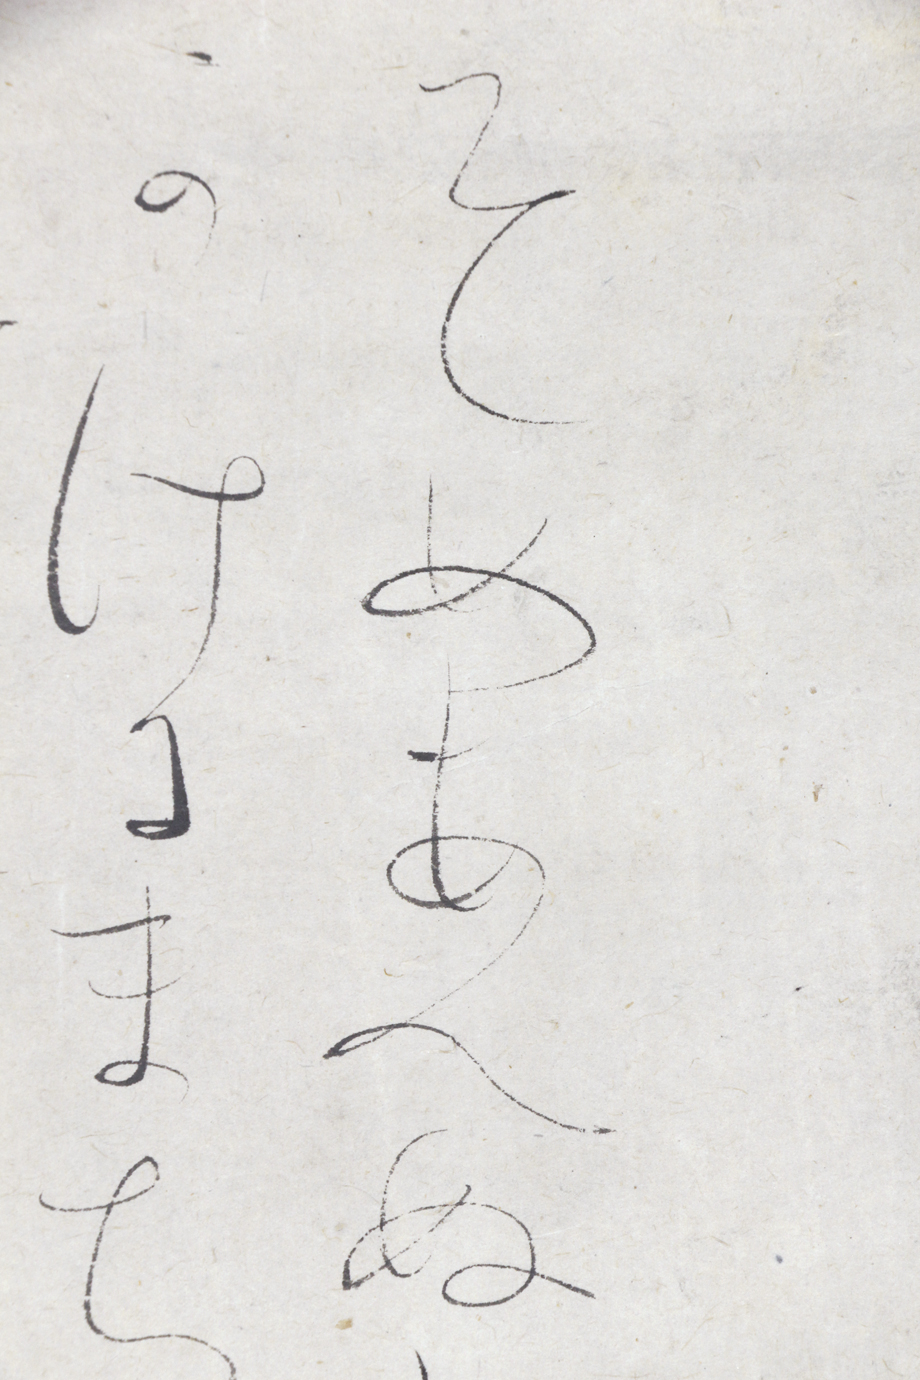 そめあへぬ
のけ まち